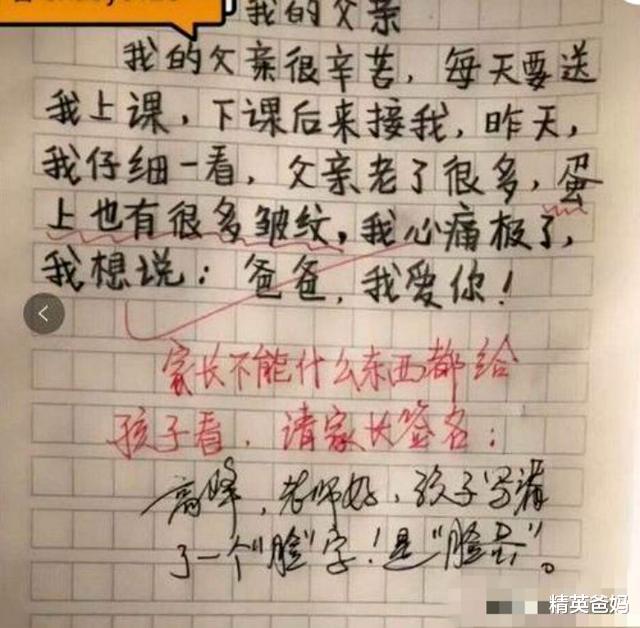 我的父亲
我的父亲很辛苦，每天要送
我上课，下课后来接我，昨天，
我仔细一看，父亲老了很多，蛋
上也有很多皱纹，我心痛极了，
我想说：爸爸，我爱你！
家长不能什么东西都给
孩子看，请家长签名：
高峰，老师好，孩子写漏
了一个“脸”字！是“脸蛋”。
精英爸妈